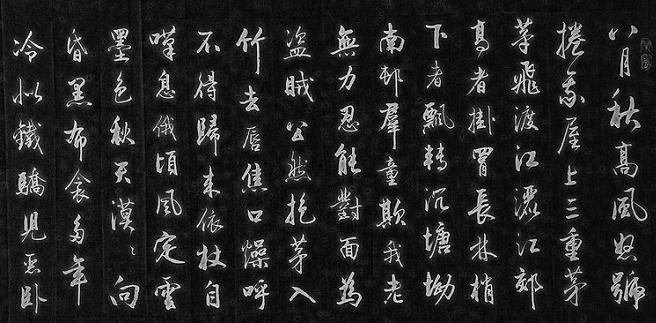 八月秋高風怒號
捲我屋上三重茅
茅飛渡江灑江郊
高者掛罥長林梢
下者飄轉沉塘坳
南邨羣童欺我老
無力忍能對面為
盜賊公然抱茅入
竹去唇焦口燥呼
不得歸來依杖自
嘆息俄頃風定雲
墨色秋天漠〻向
昏黑布衾多年
冷似鐵驕兒惡臥